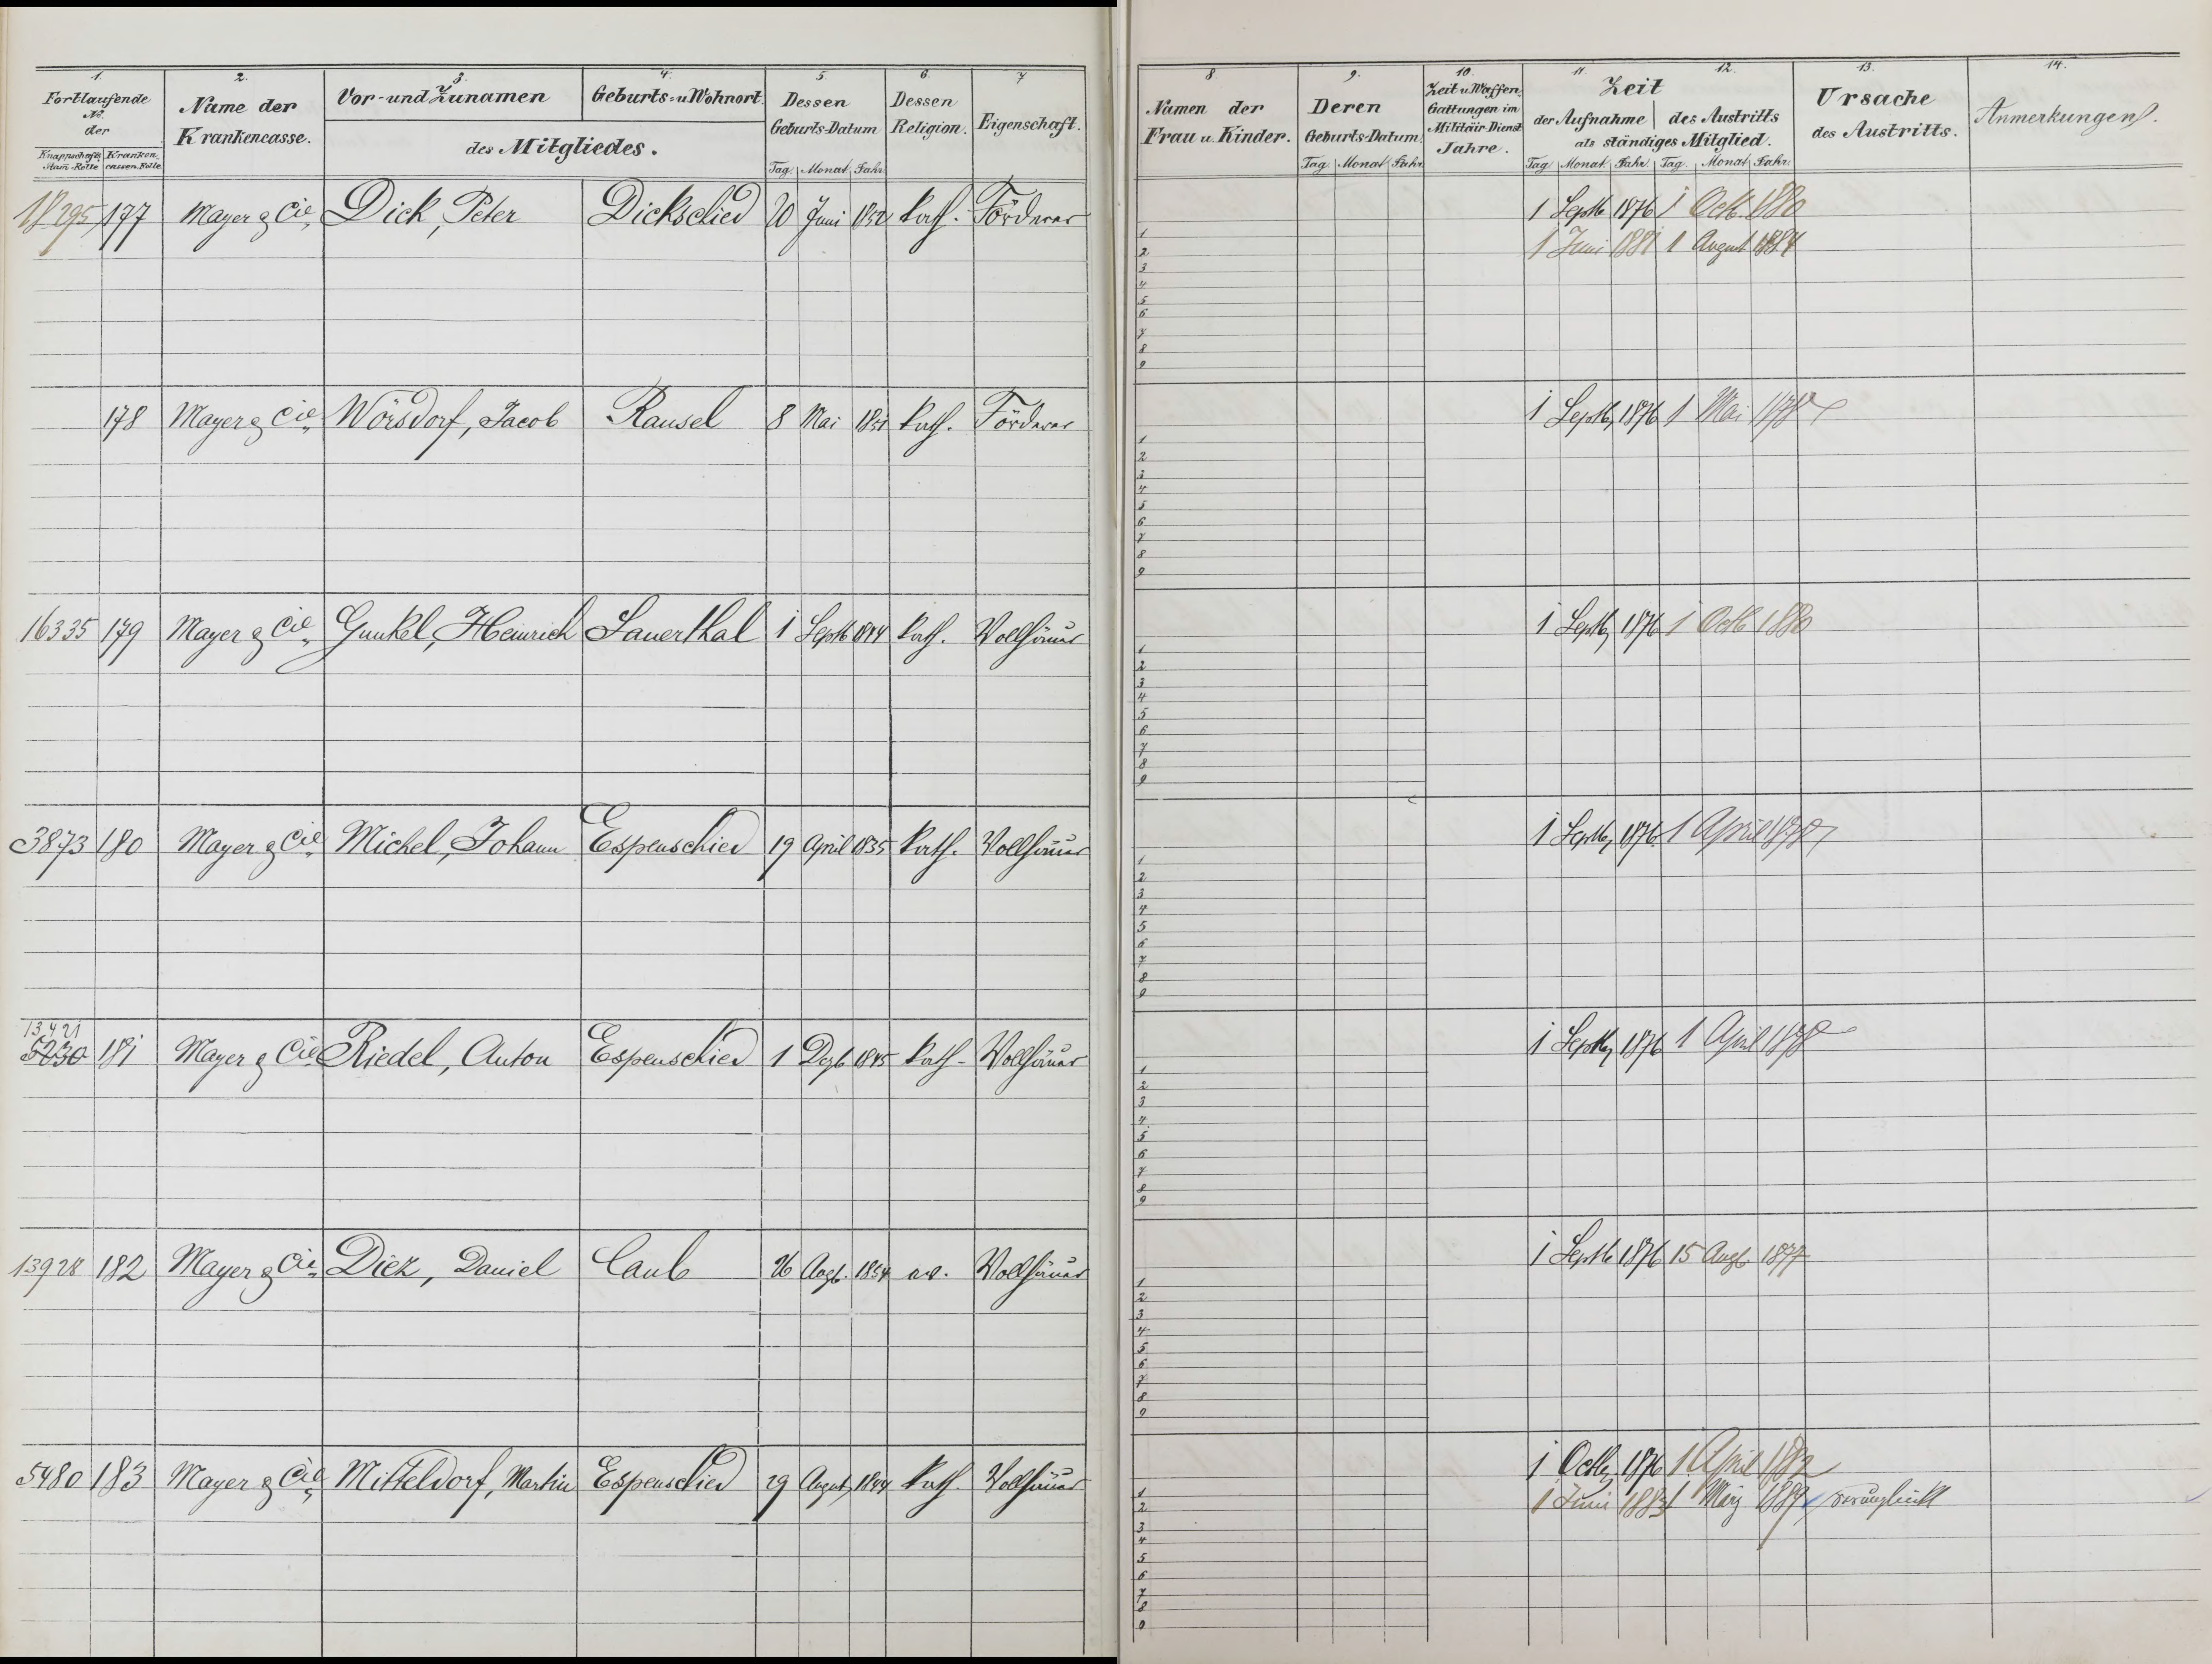 1. 2. 3. 4. 5. 6. 7
Fortlaufende No. der
Knappschafts Stam-Rolle Kranken cassen Rolle
Name der Krankencasse.
Vor- und Zunamen
Geburts- u. Wohnort.
des Mitgliedes.
Dessen Geburts-Datum
Tag. Monat Jahr
Dessen Religion.
Eigenschaft.
18295 177 Mayer & Cie. Dick, Peter Dickschied 20 Juni 1852 kath. Förderer
178 Mayer & Cie. Wörsdorf, Jacob Ransel 8 Mai kath. Förderer
16335 179 Mayer & Cie. Gunkel, Heinrich Sauerthal 1 Septb 1844 kath. Vollhäuer
3873 180 Mayer & Cie. Michel, Johann Espenschied 19 April 1835 kath. Vollhäuer
13421
5030 181 Mayer & Cie. Riedel, Anton Espenschied 1 Dezb 1845 kath. Vollhäuer
13928 182 Mayer & Cie. Diez, Daniel Caub 26 Augt. 1854 ev. Vollhäuer
5480 183 Mayer & Cie. Mitteldorf, Martin Espenschied 29 August 1844 kath. Vollhäuer
8. 9. 10. 11. 12. 13. 14.
Namen der Frau u. Kinder.
Deren Geburts-Datum
Tag Monat Jahr
Zeit u. Waffen Gattungen im Militair-Dienst Jahre.
Zeit
der Aufnahme des Austritts
als ständiges Mitglied.
Tag Monat Jahr. Tag. Monat Jahr.
Ursache des Austritts.
Anmerkungen.
1 Septb 1876 1 Octb. 1880
1
1 Juni 1881 1 August 1884
2
3
4
5
6
7
8
9
1 Septb, 1876 1 Mai 1878
1
2
3
4
5
6
7
8
9
1 Septb, 1876 1 Octb 1880
1
2
3
4
5
6
7
8
9
1 Septb, 1876 1 April 1878
1
2
3
4
5
6
7
8
9
1 Septb, 1876 1 April 1878
1
2
3
4
5
6
7
8
9
1 Septb 1876 15 Augt. 1877
1
2
3
4
5
6
7
8
9
1 Octb, 1876 1 April 1882
1
1 Juni 1883 1 März verunglückt
2
3
4
5
6
7
8
9